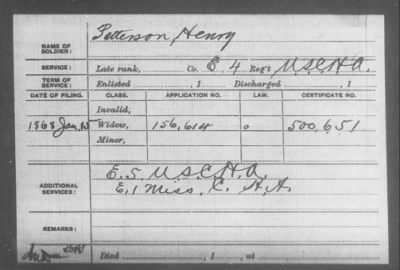 NAME OF SOLDIER: Petterson, Henry
SERVICE: Late rank, Co. E. 4 Reg't U.S.C.H.A.
TERM OF SERVICE: Enlisted , 1 Discharged , 1
DATE OF FILING. CLASS. APPLICATION NO. LAW. CERTIFICATE NO.
Invalid,
1868 Jan. 15 Widow, 156,614 o 500,651
Minor,
ADDITIONAL SERVICES: E. 5 U.S.C.H.A.
E. 1 Miss. C. H. A.
REMARKS:
Died , 1 , at